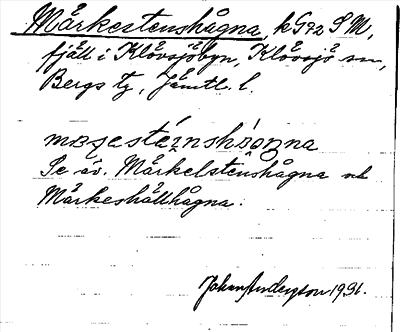 Märkestenshågna, k G92 S M,
fjäll i Klövsjöbyn, Klövsjö sn,
Bergs tg, Jämtl. l.
Se äv. Märkelstenshågna och
Märkeshällhågna.
Johan Anderzon 1931.